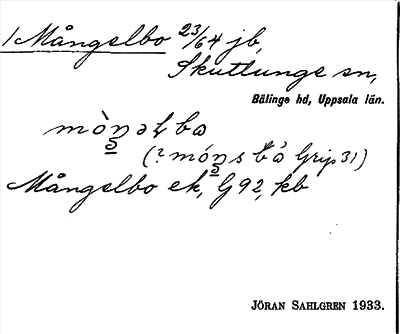 1 Mångelbo 23/64 jb,
Skuttunge sn,
Bälinge hd, Uppsala län.
mòŋəɫbo
(? móŋsbò Grip 31)
Mångelbo ek, G92, kb
JÖRAN SAHLGREN 1933.